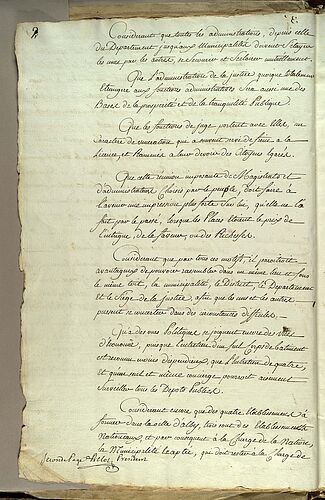 Considerant que toutes les administrations, depuis celle
du Departement jusqu'aux Municipalités doivent s'étayer
les unes par les autres, se seconder et s'eclairer mutuellement.
Que l'administration de la justice quoique totalement
Etrangere aux fonctions administratives Sera aussi une des
Bases de la prosperité et de la tranquilité publique.
Que les fonctions de juge portent avec elles, un
caractere de veneration qui a souvent servi de frein à la
Licence, et Ramené a leur devoir des Citoyens egarés.
Que cette reunion imposante de Magistrats et
d'administrateurs choisis par le peuple, doit faire à
l'avenir une impression plus forte Sur lui, qu'elle ne l'a
fait par le passé, lorsque les Places étoient le prix de
l'intrigue, de la faveur, ou des Richesses.
Considerant que par tous ces motifs, il paroitroit
avantageux de pouvoir rassembler dans un même lieu et sous
le même toit, la municipalité, le District, le Departement
et le Siege de la Justice, afin que les uns et les autres
puissent se concerter dans des circonstances difficiles.
Qu'à des vues Politiques, se joignent encore des vues
d'économie, puisque l'entretien d'un seul corps de batiment
est reconnu moins dispendieux, que l'entretien de quatre,
et qu'un seul et même concierge pourroit aisement
Surveiller tous les Depots Publics.
Considerant encore que des quatre Etablissements à
former dans la ville d'alby, trois sont des Etablissements
Nationaux et par consequent à la Charge de la Nation,
la Municipalité Exceptée, qui doit rester à la Charge de
seconde Page